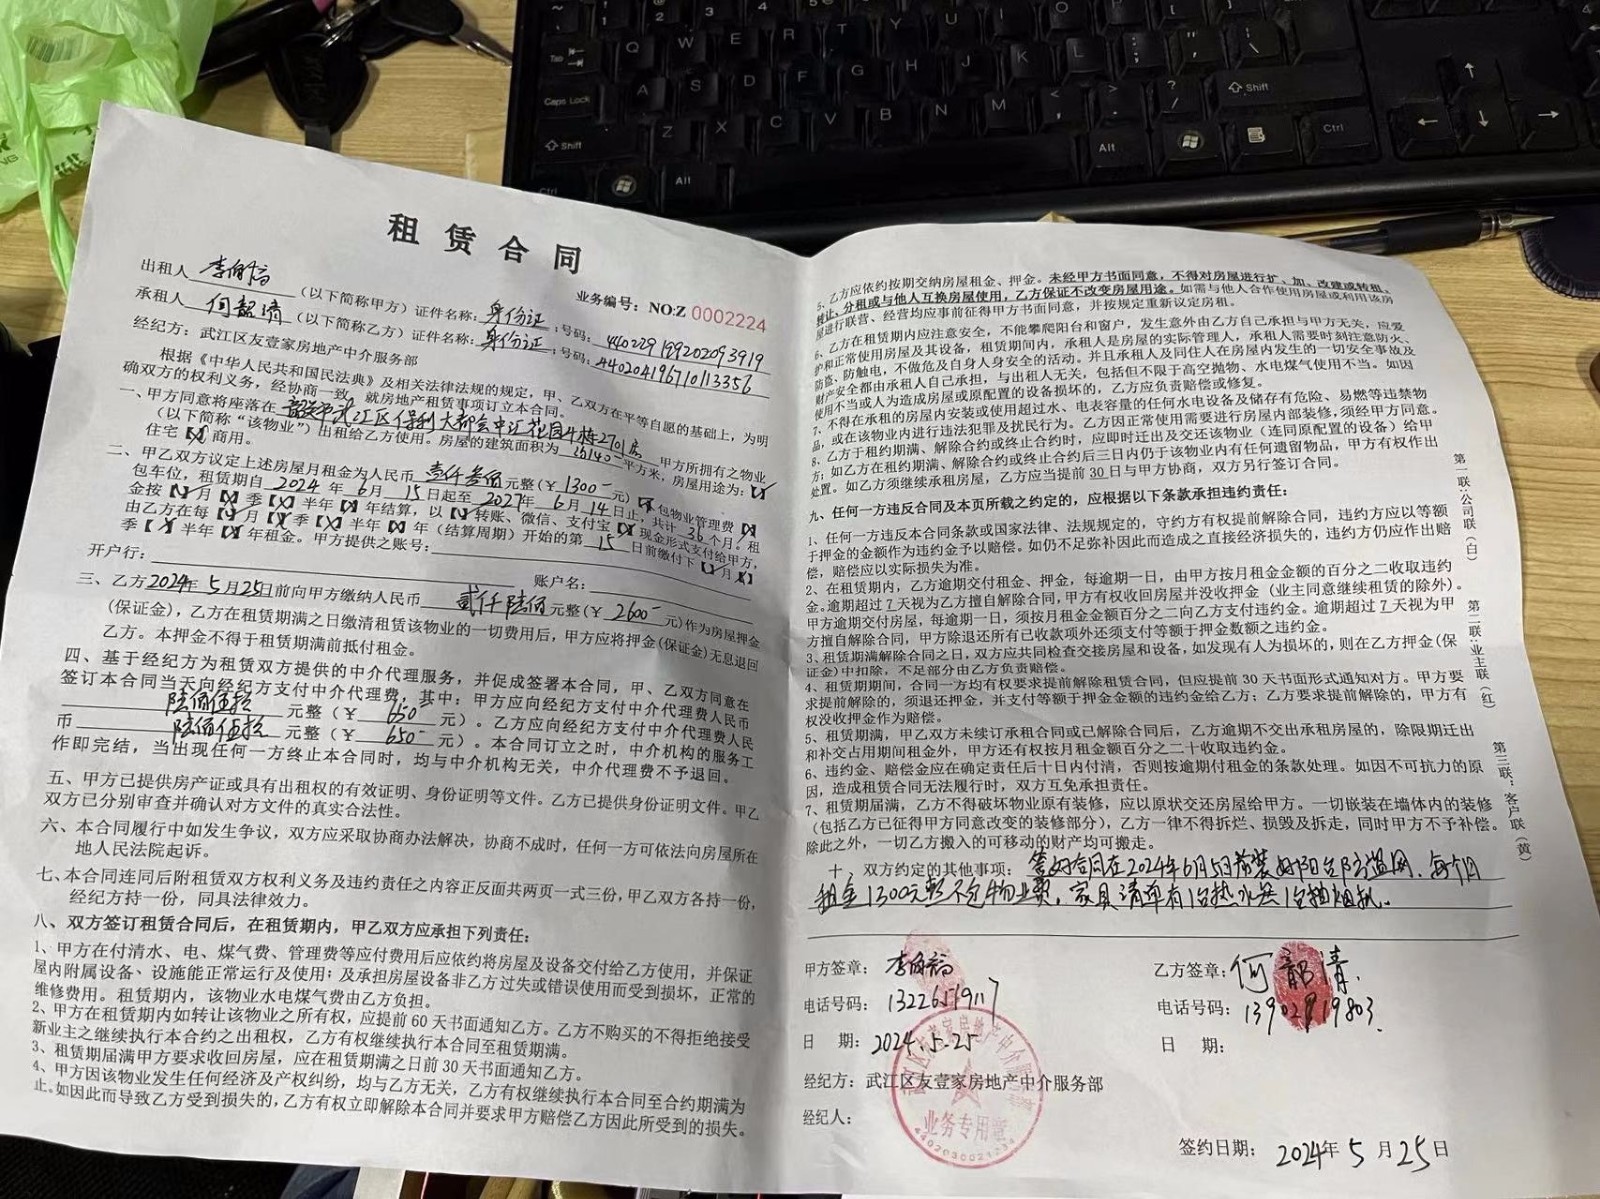 租赁合同
业务编号：NO:Z 0002224
出租人 李伯禧 （以下简称甲方）证件名称：身份证；号码：440229199202093919
承租人 何韶清 （以下简称乙方）证件名称：身份证；号码：440204196710113356
经纪方：武江区友壹家房地产中介服务部
根据《中华人民共和国民法典》及相关法律法规的规定，甲、乙双方在平等自愿的基础上，为明
确双方的权利义务，经协商一致，就房地产租赁事项订立本合同。
一、甲方同意将座落在 韶关市武江区保利大都会中汇花园4栋2701房 甲方所拥有之物业
（以下简称“该物业”）出租给乙方使用。房屋的建筑面积为 平方米，房屋用途为：【】
住宅【】商用。
二、甲乙双方议定上述房屋月租金为人民币 壹仟叁佰 元整（￥1300-元）【】包物业管理费【】
包车位，租赁期自 2024 年 6 月 15 日起至 2027 年 6 月 14 日止，共计 36 个月。租
金按【】月【】季【】半年【】年结算，以【】转账、微信、支付宝【】现金形式支付给甲方，
由乙方在每【】月【】季【】半年【】年（结算周期）开始的第 15 日前缴付下【】月【】
季【】半年【】年租金。甲方提供之账号：
开户行： 账户名：
三、乙方2024年 5 月25日前向甲方缴纳人民币 贰仟陆佰 元整（￥2600-元）作为房屋押金
（保证金），乙方在租赁期满之日缴清租赁该物业的一切费用后，甲方应将押金（保证金）无息退回
乙方。本押金不得于租赁期满前抵付租金。
四、基于经纪方为租赁双方提供的中介代理服务，并促成签署本合同，甲、乙双方同意在
签订本合同当天向经纪方支付中介代理费，其中：甲方应向经纪方支付中介代理费人民币
陆佰伍拾 元整（￥ 650- 元）。乙方应向经纪方支付中介代理费人民
币 陆佰伍拾 元整（￥ 650- 元）。本合同订立之时，中介机构的服务工
作即完结，当出现任何一方终止本合同时，均与中介机构无关，中介代理费不予退回。
五、甲方已提供房产证或具有出租权的有效证明、身份证明等文件。乙方已提供身份证明文件。甲乙
双方已分别审查并确认对方文件的真实合法性。
六、本合同履行中如发生争议，双方应采取协商办法解决，协商不成时，任何一方可依法向房屋所在
地人民法院起诉。
七、本合同连同后附租赁双方权利义务及违约责任之内容正反面共两页一式三份，甲乙双方各持一份，
经纪方持一份，同具法律效力。
八、双方签订租赁合同后，在租赁期内，甲乙双方应承担下列责任：
1、甲方在付清水、电、煤气费、管理费等应付费用后应依约将房屋及设备交付给乙方使用，并保证
屋内附属设备、设施能正常运行及使用；及承担房屋设备非乙方过失或错误使用而受到损坏，正常的
维修费用。租赁期内，该物业水电煤气费由乙方负担。
2、甲方在租赁期内如转让该物业之所有权，应提前60天书面通知乙方。乙方不购买的不得拒绝接受
新业主之继续执行本合约之出租权，乙方有权继续执行本合同至租赁期满。
3、租赁期届满甲方要求收回房屋，应在租赁期满之日前30天书面通知乙方。
4、甲方因该物业发生任何经济及产权纠纷，均与乙方无关，乙方有权继续执行本合同至合约期满为
止。如因此而导致乙方受到损失的，乙方有权立即解除本合同并要求甲方赔偿乙方因此所受到的损失。
5、乙方应依约按期交纳房屋租金、押金。未经甲方书面同意，不得对房屋进行扩、加、改建或转租、
转让、分租或与他人互换房屋使用，乙方保证不改变房屋用途。如需与他人合作使用房屋或利用该房
屋进行联营、经营均应事前征得甲方书面同意，并按规定重新议定房租。
6、乙方在租赁期内应注意安全，不能攀爬阳台和窗户，发生意外由乙方自己承担与甲方无关，应爱
护和正常使用房屋及其设备，租赁期间内，承租人是房屋的实际管理人，承租人需要时刻注意防火、
防盗、防触电，不做危及自身人身安全的活动。并且承租人及同住人在房屋内发生的一切安全事故及
财产安全都由承租人自己承担，与出租人无关，包括但不限于高空抛物、水电煤气使用不当。如因
使用不当或人为造成房屋或原配置的设备损坏的，乙方应负责赔偿或修复。
7、不得在承租的房屋内安装或使用超过水、电表容量的任何水电设备及储存有危险、易燃等违禁物
品，或在该物业内进行违法犯罪及扰民行为。乙方因正常使用需要进行房屋内部装修，须经甲方同意。
8、乙方于租约期满、解除合约或终止合约时，应即时迁出及交还该物业（连同原配置的设备）给甲
方；如乙方在租约期满、解除合约或终止合约后三日内仍于该物业内有任何遗留物品，甲方有权作出
处置。如乙方须继续承租房屋，乙方应当提前30日与甲方协商，双方另行签订合同。
九、任何一方违反合同及本页所载之约定的，应根据以下条款承担违约责任：
1、任何一方违反本合同条款或国家法律、法规规定的，守约方有权提前解除合同，违约方应以等额
于押金的金额作为违约金予以赔偿。如仍不足弥补因此而造成之直接经济损失的，违约方仍应作出赔
偿，赔偿应以实际损失为准。
2、在租赁期内，乙方逾期交付租金、押金，每逾期一日，由甲方按月租金金额的百分之二收取违约
金。逾期超过7天视为乙方擅自解除合同，甲方有权收回房屋并没收押金（业主同意继续租赁的除外）。
甲方逾期交付房屋，每逾期一日，须按月租金金额百分之二向乙方支付违约金。逾期超过7天视为甲
方擅自解除合同，甲方除退还所有已收款项外还须支付等额于押金数额之违约金。
3、租赁期满解除合同之日，双方应共同检查交接房屋和设备，如发现有人为损坏的，则在乙方押金（保
证金）中扣除，不足部分由乙方负责赔偿。
4、租赁期期间，合同一方均有权要求提前解除租赁合同，但应提前30天书面形式通知对方。甲方要
求提前解除的，须退还押金，并支付等额于押金金额的违约金给乙方；乙方要求提前解除的，甲方有
权没收押金作为赔偿。
5、租赁期满，甲乙双方未续订承租合同或已解除合同后，乙方逾期不交出承租房屋的，除限期迁出
和补交占用期间租金外，甲方还有权按月租金额百分之二十收取违约金。
6、违约金、赔偿金应在确定责任后十日内付清，否则按逾期付租金的条款处理。如因不可抗力的原
因，造成租赁合同无法履行时，双方互免承担责任。
7、租赁期届满，乙方不得破坏物业原有装修，应以原状交还房屋给甲方。一切嵌装在墙体内的装修
（包括乙方已征得甲方同意改变的装修部分），乙方一律不得拆烂、损毁及拆走，同时甲方不予补偿。
除此之外，一切乙方搬入的可移动的财产均可搬走。
十、双方约定的其他事项：签好合同在2024年6月5日前装好阳台防盗网，每个月
租金1300元整不包物业费，家具清单有1台热水器1台抽烟机。
甲方签章： 李伯禧
电话号码： 13226519117
日 期： 2024.5.25
乙方签章：何韶清
电话号码：13902819803
日 期：
经纪方：武江区友壹家房地产中介服务部
经纪人：
签约日期： 2024年 5 月 25日
业务专用章
第一联：公司联（白）
第二联：业主联（红）
第三联：客户联（黄）
Q W E R T Y U I O P
Tab
Caps Lock A S D F G H J K L
Shift Z X C V B N M Shift
Ctrl Alt Alt Ctrl